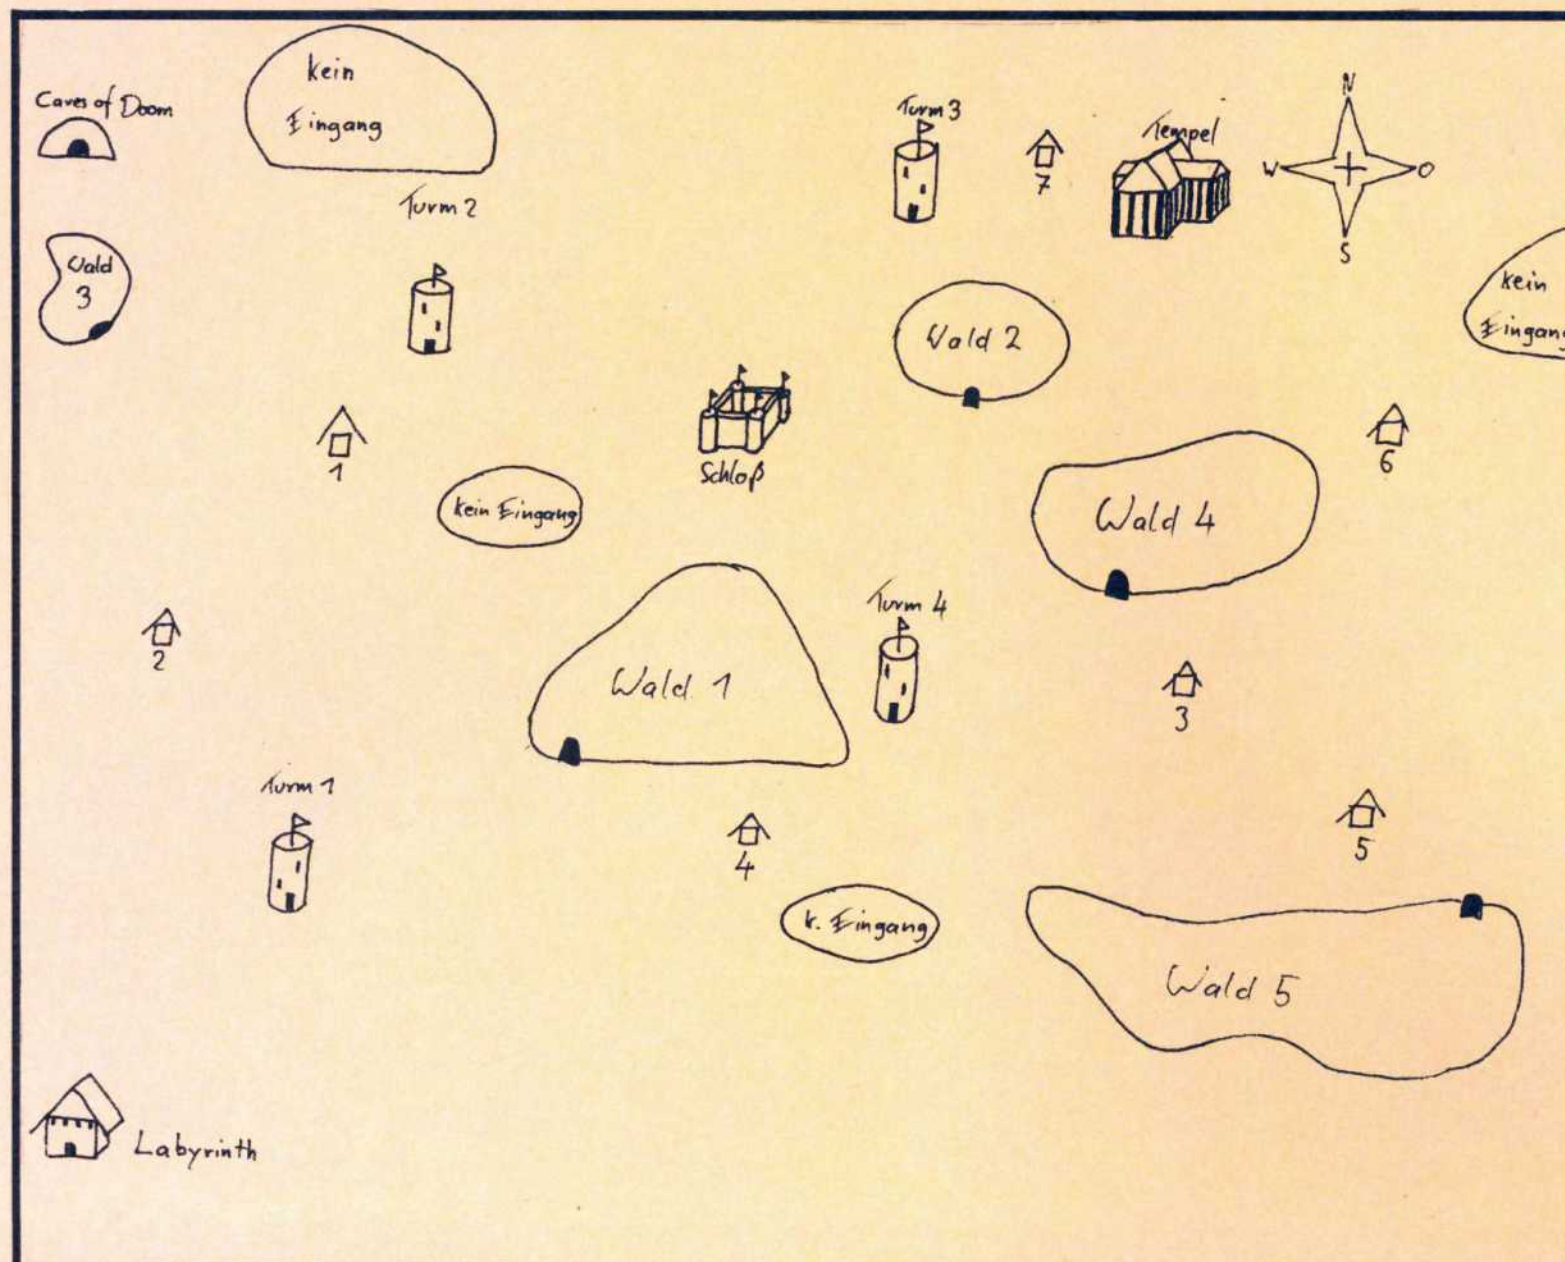 kein
Eingang
Caves of Doom
Turm 3
7
Tempel
N
W
O
S
Turm 2
Wald
3
Wald 2
kein
Eingang
1
Schloß
6
kein Eingang
Wald 4
2
Turm 4
Wald 1
3
Turm 1
4
5
k. Eingang
Wald 5
Labyrinth